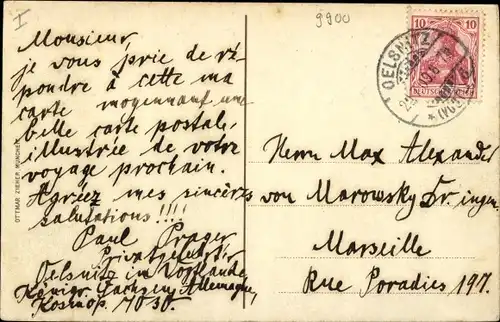 I
9900
Monsieur,
je vous prie de ré-
pondre à cette ma
carte moyennant une
belle carte postale
illustrée de votre
voyage prochain.
Agréez mes sincèrs
salutations!!!!
Paul Prager
Privatgelehrter
Oelsnitz im Vogtlande,
Königr. Sachsen, Allemagne,
Kosmop. 7030.
OTTMAR ZIEHER, MÜNCHEN
10 10
DEUTSCHES REICH
OELSNITZ
Herrn Max Alexander
von Marowsky Dr. ingen.
Marseille
Rue Poradies 197.